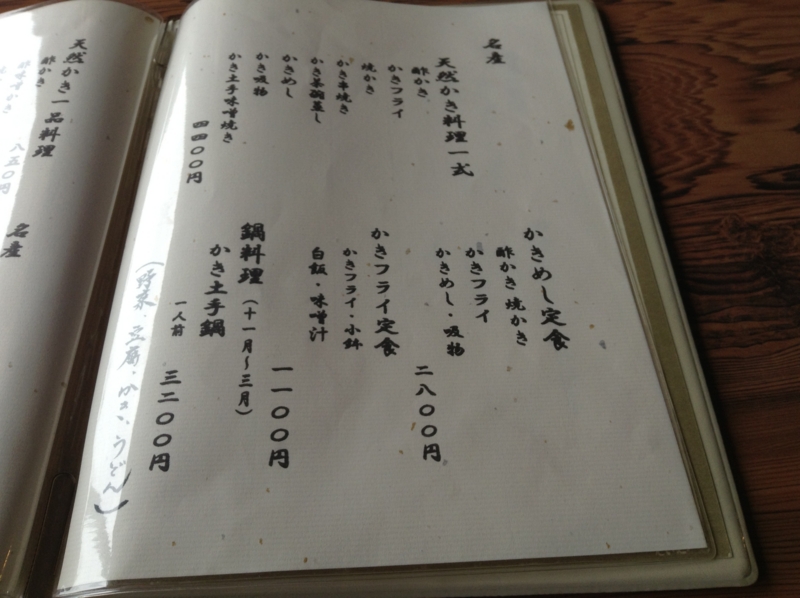 名産
天然かき料理一式
酢かき
かきフライ
焼かき
かき串焼き
かき茶碗蒸し
かきめし
かき吸物
かき土手味噌焼き
四四〇〇円
かきめし定食
酢かき 焼かき
かきフライ
かきめし・吸物
二八〇〇円
かきフライ定食
かきフライ・小鉢
白飯・味噌汁
一一〇〇円
鍋料理（十一月〜三月）
かき土手鍋
一人前
三二〇〇円
（野菜・豆腐・かき・うどん）
天然かき一品料理
酢かき
八五〇円
酢味噌かき
名産